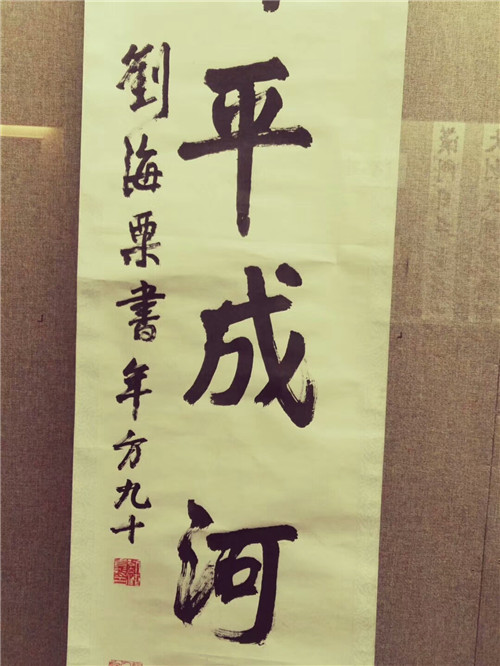 平成河
劉海粟書年方九十